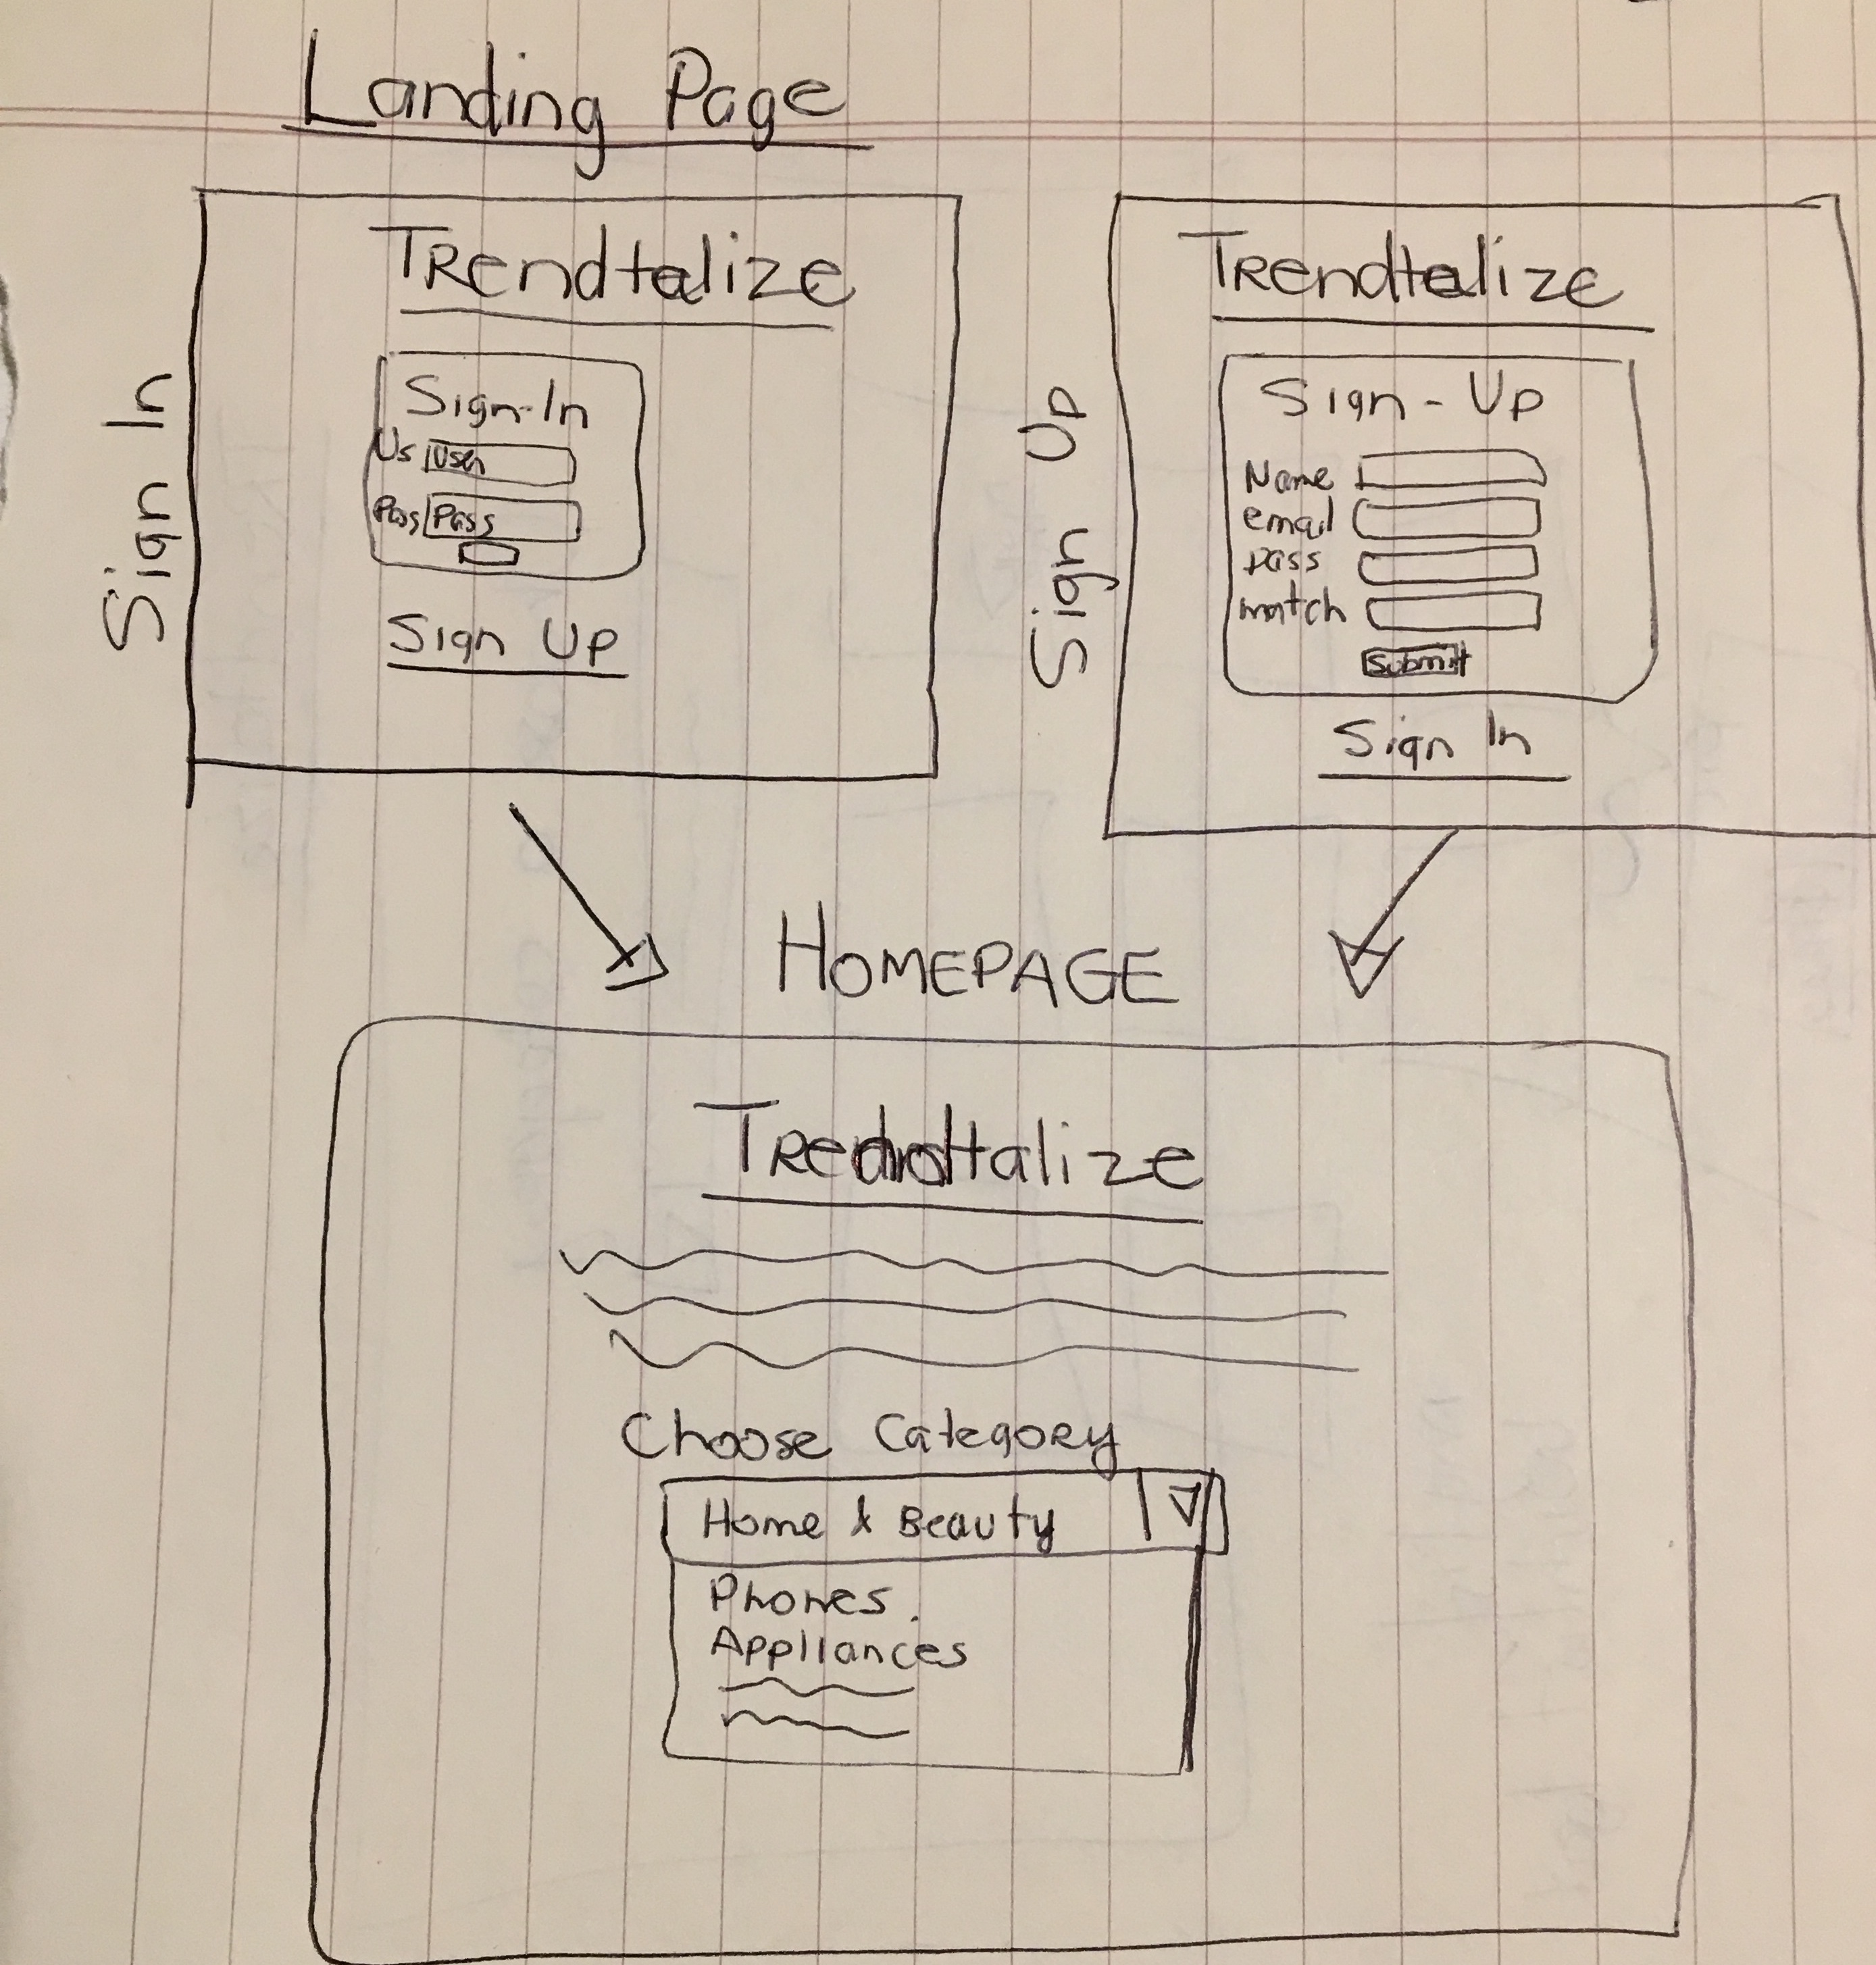 Landing Page
Sign In
Trendtalize
Sign-In
Us User
Pass Pass
Sign Up
Sign Up
Trendtalize
Sign-Up
Name
email
pass
match
Submit
Sign In
HOMEPAGE
Trendtalize
Choose Category
Home & Beauty
Phones
Appliances